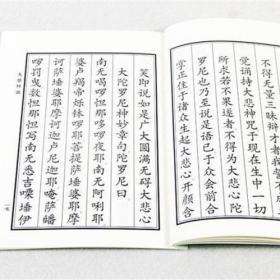 不得无量三昧辩才者我誓不成正
觉诵持大悲神咒于现在生中一切
所求若不果遂者不得为大悲心陀
罗尼也乃至说是语已于众会前合
掌正住于诸众生起大悲心开颜含
笑即说如是广大圆满无碍大悲心
大陀罗尼神妙章句陀罗尼曰
南无喝啰怛那哆啰夜耶南无阿唎耶
婆卢羯帝烁钵啰耶菩提萨埵婆耶摩
诃萨埵婆耶摩诃迦卢尼迦耶唵萨皤
啰罚曳数怛那怛写南无悉吉嘌埵伊